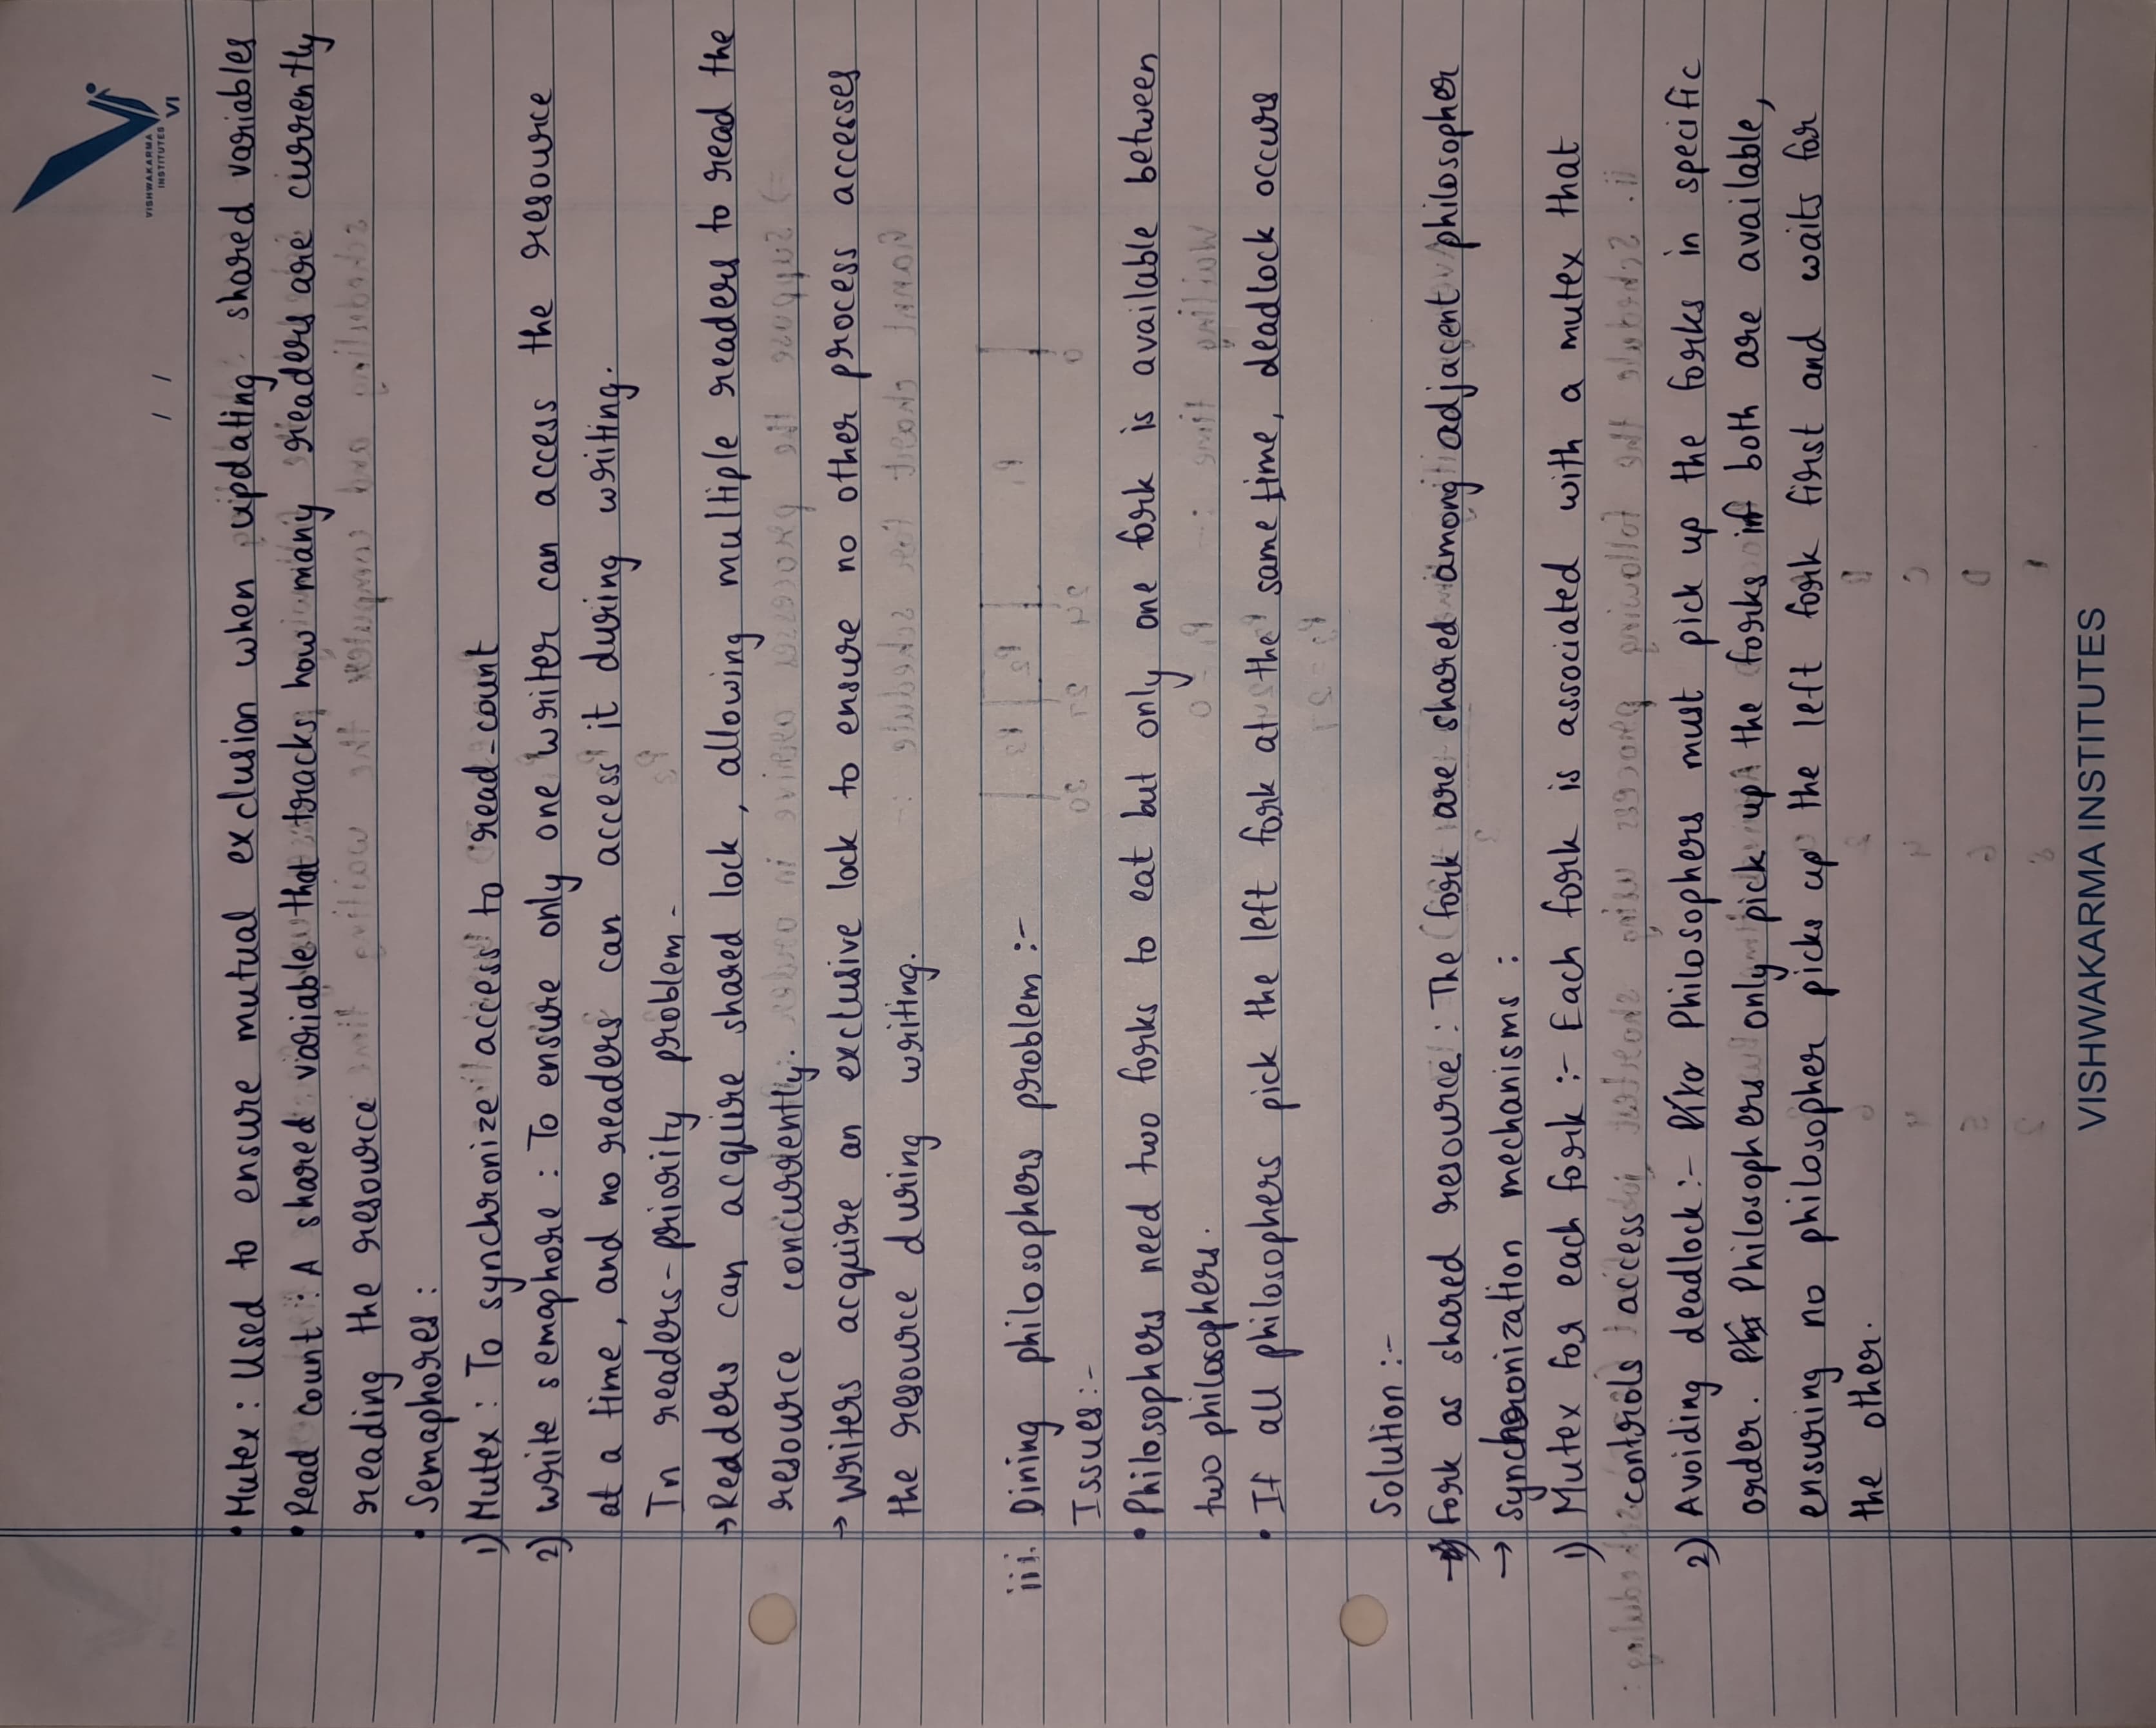 VISHWAKARMA
INSTITUTES
VI
/ /
• Mutex : Used to ensure mutual exclusion when updating shared variables
• Read count : A shared variable that tracks how many readers are currently
reading the resource
• Semaphores :
1) Mutex : To synchronize access to read-count
2) write semaphore : To ensure only one writer can access the resource
at a time, and no readers can access it during writing.
In readers-priority problem -
→ Readers can acquire shared lock, allowing multiple readers to read the
resource concurrently.
→ Writers acquire an exclusive lock to ensure no other process accesses
the resource during writing.
iii. Dining philosophers problem :-
Issues :-
• Philosophers need two forks to eat but only one fork is available between
two philosophers.
• If all philosophers pick the left fork at the same time, deadlock occurs
Solution :-
→ Fork as shared resource : The fork are shared among adjacent philosopher
→ Synchronization mechanisms :
1) Mutex for each fork :- Each fork is associated with a mutex that
controls access
2) Avoiding deadlock :- Philosophers must pick up the forks in specific
order. Philosophers only pick up the forks if both are available,
ensuring no philosopher picks up the left fork first and waits for
the other.
VISHWAKARMA INSTITUTES